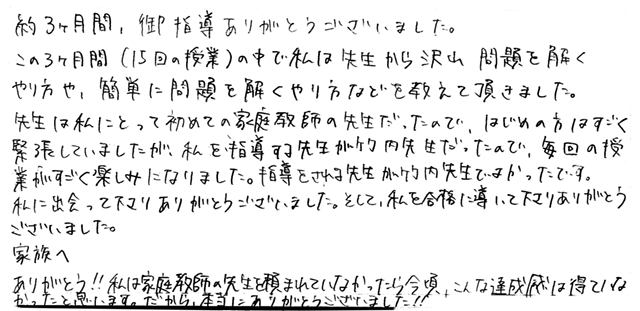 約3ヶ月間、御指導ありがとうございました。
この3ヶ月間(15回の授業)の中で私は先生から沢山 問題を解く
やり方や、簡単に問題を解くやり方などを教えて頂きました。
先生は私にとって初めての家庭教師の先生だったので、はじめの方はすごく
緊張していましたが、私を指導する先生が竹内先生だったので、毎回の授
業がすごく楽しみになりました。指導をされる先生が竹内先生でよかったです。
私に出会って下さりありがとうございました。そして、私を合格に導いて下さりありがとう
ございました。
家族へ
ありがとう!!私は家庭教師の先生を頼まれていなかったら今頃、こんな達成感は得ていな
かったと思います。だから、本当にありがとうございました!!